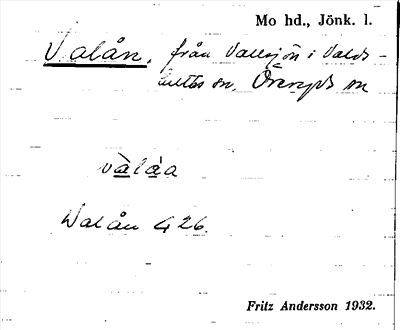 Mo hd., Jönk. l.
Valån, från Vallsjön i Valds-
hults sn, Öreryds sn
vàláa
Walån 426.
Fritz Andersson 1932.